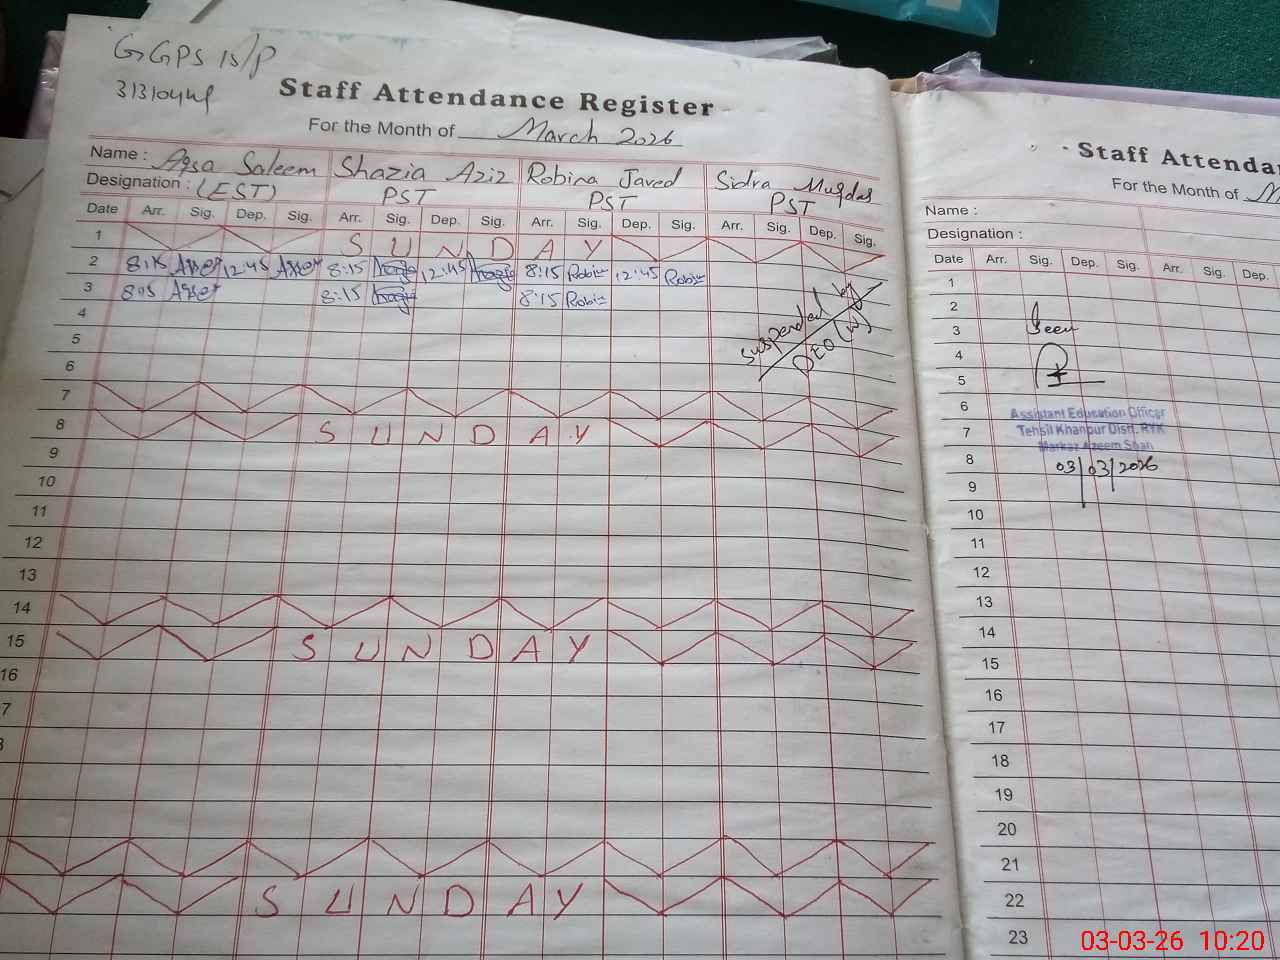 GGPS 15/P
31310448
Staff Attendance Register
For the Month of March 2026
Name : Aqsa Saleem Shazia Aziz Robina Javed Sidra Muqdas
Designation : (EST) PST PST PST
Date Arr. Sig. Dep. Sig. Arr. Sig. Dep. Sig. Arr. Sig. Dep. Sig. Arr. Sig. Dep. Sig.
1 SUNDAY
2 8:15 12:45 8:15 12:45 8:15 Robin 12:45 Robin
3 8:15 8:15 8:15 Robin
suspended by
DEO (W)
4
5
6
7
8 SUNDAY
9
10
11
12
13
14
15 SUNDAY
16
7
8
SUNDAY
Staff Attenda
For the Month of M
Name :
Designation :
Date Arr. Sig. Dep. Sig. Arr. Sig. Dep.
1
2
3 Seen
4
5
6 Assistant Education Officer
7 Tehsil Khanpur Distt. RYK
Markaz Azeem Shah
8 03/03/2026
9
10
11
12
13
14
15
16
17
18
19
20
21
22
23
03-03-26 10:20